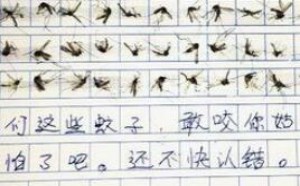 们这些蚊子,敢咬你姑
怕了吧。还不快认错。